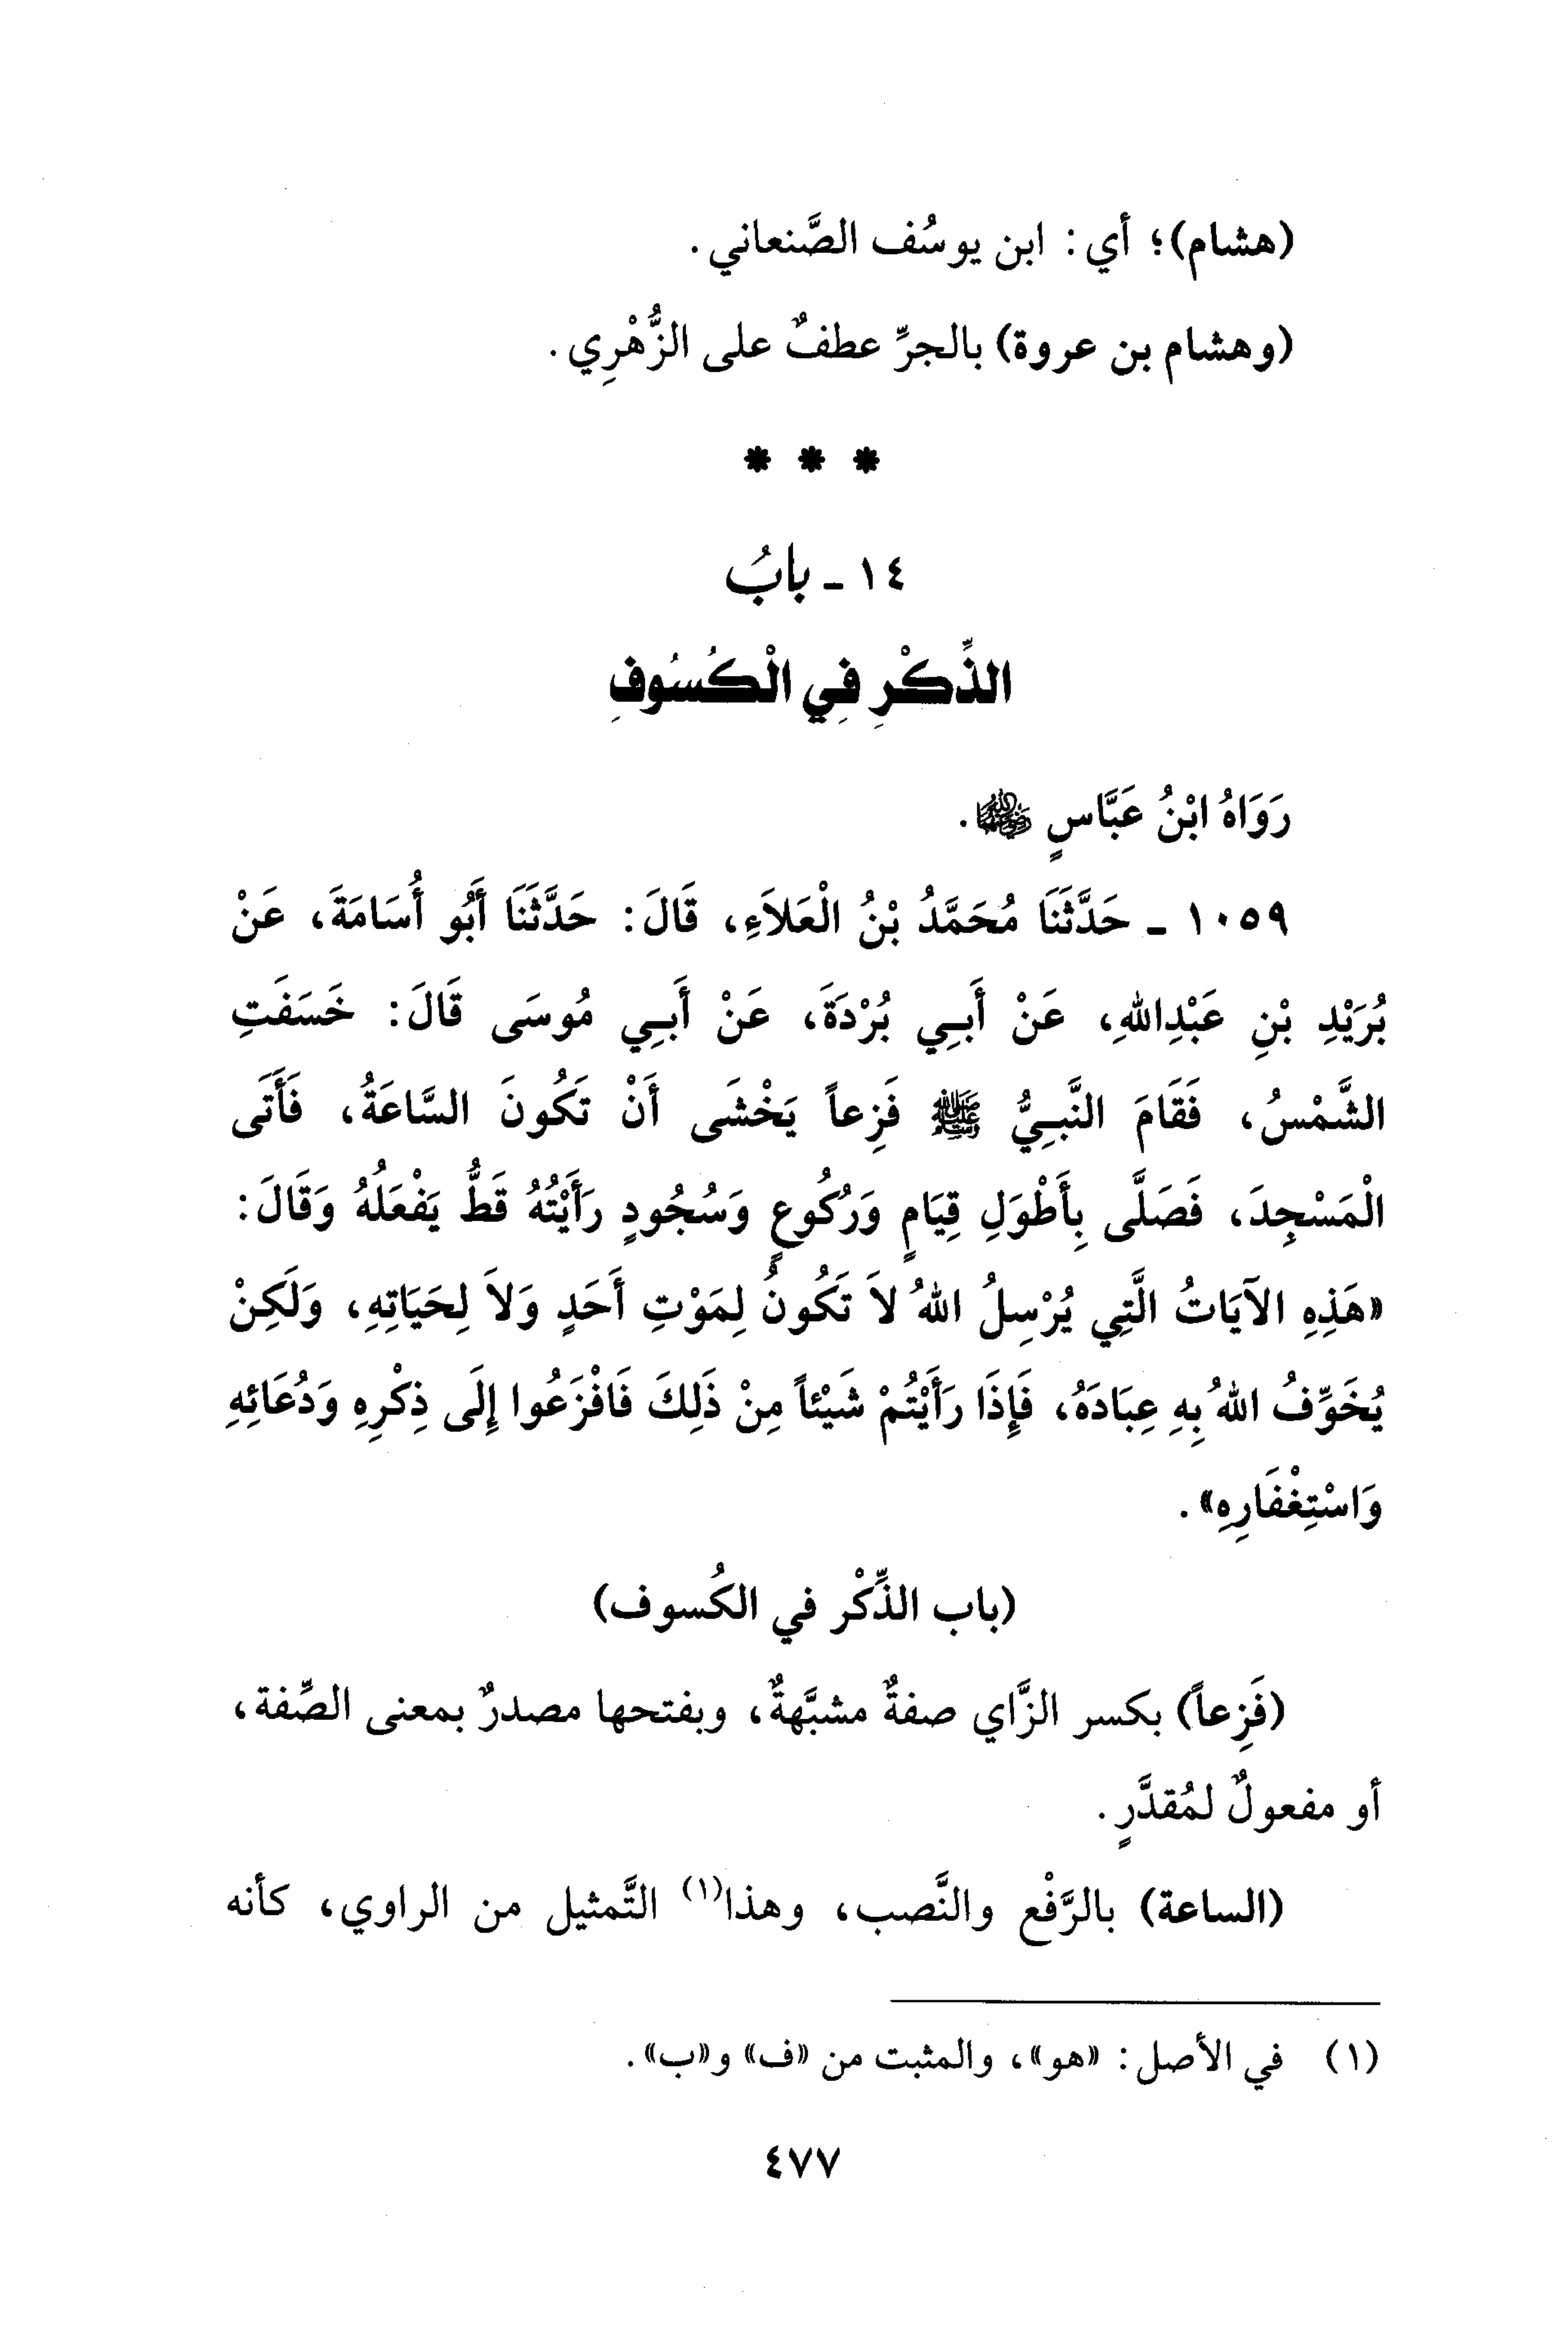 (هشام)؛ أي: ابن يوسُف الصَّنعاني.
(وهشام بن عروة) بالجرِّ عطفٌ على الزُّهْرِي.
* * *
١٤ - بابُ
الذِّكْرِ فِي الْكُسُوفِ
رَوَاهُ ابْنُ عَبَّاسٍ رضي الله عنهما.
١٠٥٩ - حَدَّثَنَا مُحَمَّدُ بْنُ الْعَلاَءِ، قَالَ: حَدَّثَنَا أَبُو أُسَامَةَ، عَنْ
بُرَيْدِ بْنِ عَبْدِاللهِ، عَنْ أَبِي بُرْدَةَ، عَنْ أَبِي مُوسَى قَالَ: خَسَفَتِ
الشَّمْسُ، فَقَامَ النَّبِيُّ ﷺ فَزِعاً يَخْشَى أَنْ تَكُونَ السَّاعَةُ، فَأَتَى
الْمَسْجِدَ، فَصَلَّى بِأَطْوَلِ قِيَامٍ وَرُكُوعٍ وَسُجُودٍ رَأَيْتُهُ قَطُّ يَفْعَلُهُ وَقَالَ:
«هَذِهِ الآيَاتُ الَّتِي يُرْسِلُ اللهُ لاَ تَكُونُ لِمَوْتِ أَحَدٍ وَلاَ لِحَيَاتِهِ، وَلَكِنْ
يُخَوِّفُ اللهُ بِهِ عِبَادَهُ، فَإِذَا رَأَيْتُمْ شَيْئاً مِنْ ذَلِكَ فَافْزَعُوا إِلَى ذِكْرِهِ وَدُعَائِهِ
وَاسْتِغْفَارِهِ».
(باب الذِّكْر في الكُسوف)
(فَزِعاً) بكسر الزَّاي صفةٌ مشبَّهةٌ، وبفتحها مصدرٌ بمعنى الصِّفة،
أو مفعولٌ لمُقدَّرٍ.
(الساعة) بالرَّفْع والنَّصب، وهذا(١) التَّمثيل من الراوي، كأنه
(١) في الأصل: «هو»، والمثبت من «ف» و«ب».
٤٧٧